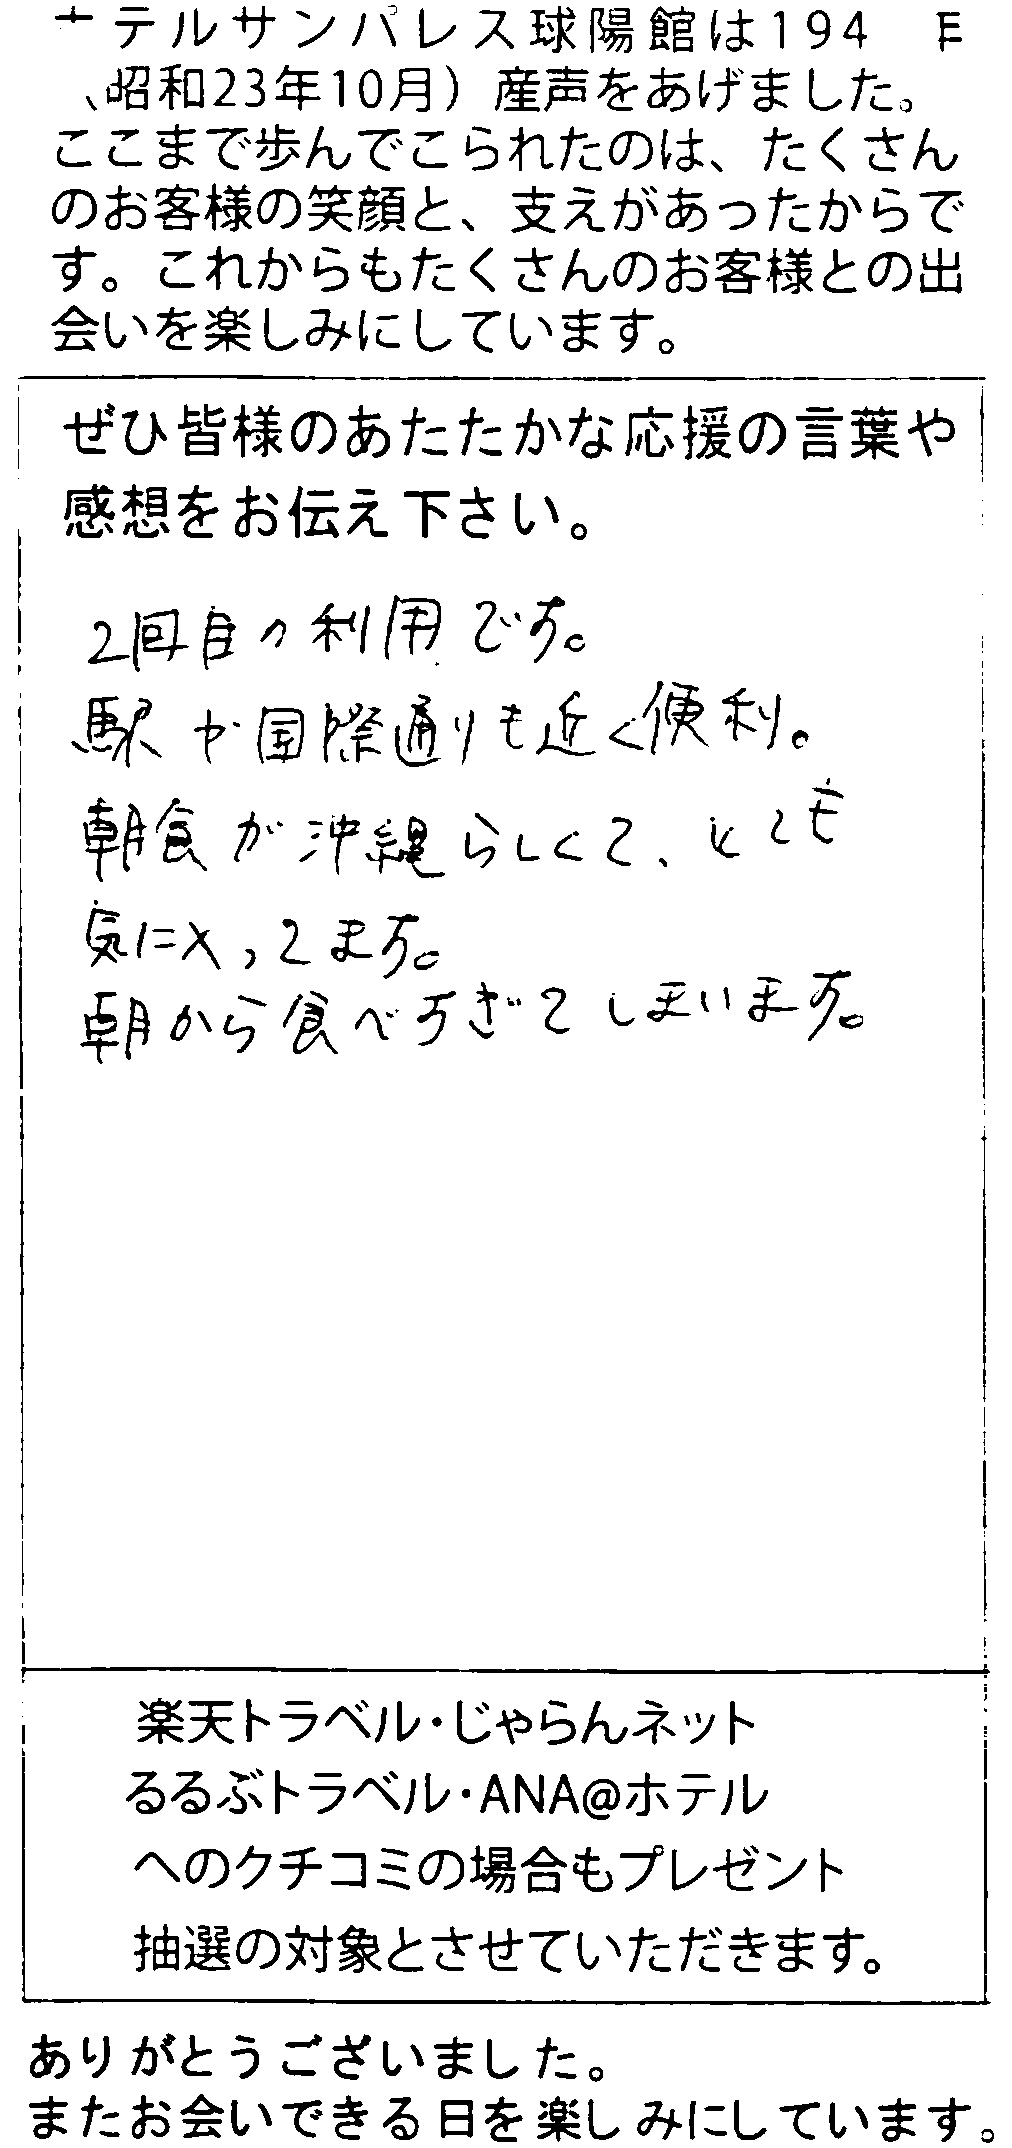 テルサンパレス球陽館は194
昭和23年10月）産声をあげました。
ここまで歩んでこられたのは、たくさん
のお客様の笑顔と、支えがあったからで
す。これからもたくさんのお客様との出
会いを楽しみにしています。
ぜひ皆様のあたたかな応援の言葉や
感想をお伝え下さい。
2回目の利用です。
駅や国際通りも近く便利。
朝食が沖縄らしくて、とても
気に入ってます。
朝から食べすぎてしまいます。
楽天トラベル・じゃらんネット
るるぶトラベル・ANA@ホテル
へのクチコミの場合もプレゼント
抽選の対象とさせていただきます。
ありがとうございました。
またお会いできる日を楽しみにしています。